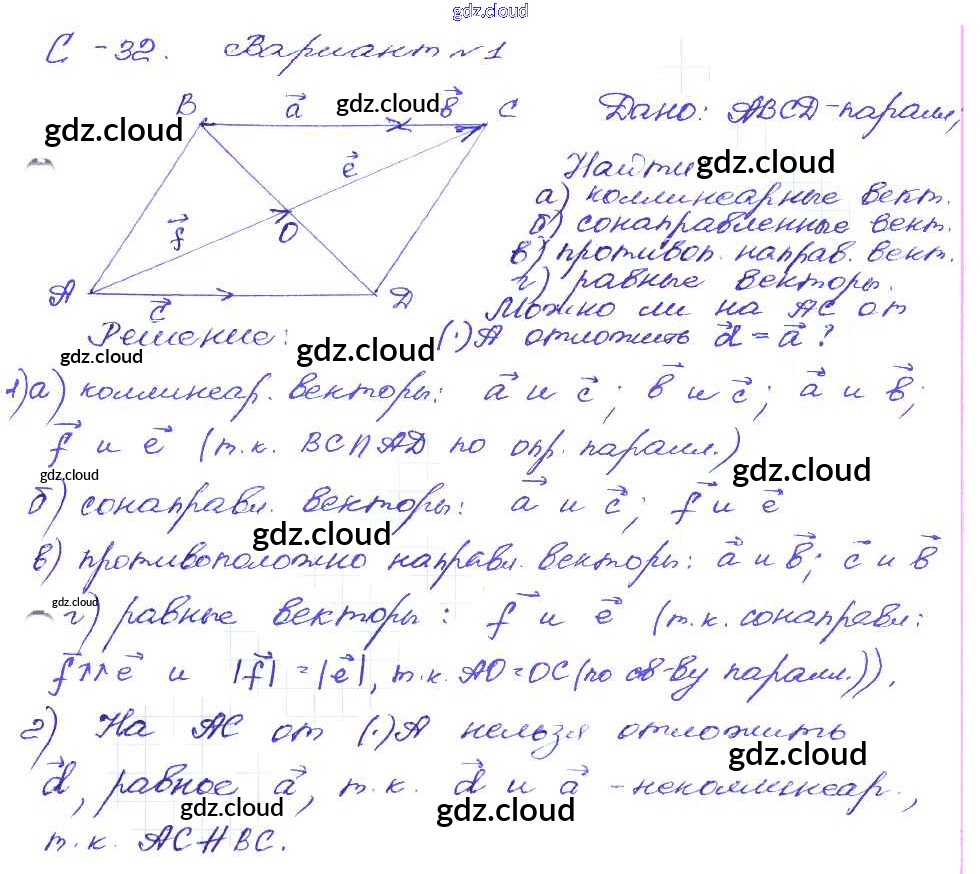 gdz.cloud
С-32. Вариант №1
B a⃗ gdz.cloud b⃗ C
gdz.cloud
Дано: ABCD-паралл,
e⃗
f⃗
O
A c⃗ D
Найти gdz.cloud
а) коллинеарные вект.
б) сонаправленные вект.
в) противоп. направ. вект.
г) равные векторы.
Можно ли на AC от
(·)A отложить d⃗ = a⃗ ?
Решение:
gdz.cloud gdz.cloud
1) а) коллинеар. векторы: a⃗ и c⃗; b⃗ и c⃗; a⃗ и b⃗;
f⃗ и e⃗ (т.к. BC ∩ AD по опр. паралл.)
gdz.cloud gdz.cloud
б) сонаправл. векторы: a⃗ и c⃗; f⃗ и e⃗
gdz.cloud
в) противоположно направл. векторы: a⃗ и b⃗; c⃗ и b⃗
gdz.cloud
г) равные векторы: f⃗ и e⃗ (т.к. сонаправл:
f⃗↑↑e⃗ и |f⃗| = |e⃗|, т.к. AO=OC (по св-ву паралл.)).
2) На AC от (·)A нельзя отложить
gdz.cloud
d⃗, равное a⃗, т.к. d⃗ и a⃗ - неколлинеар.,
gdz.cloud gdz.cloud
т.к. AC∦BC.